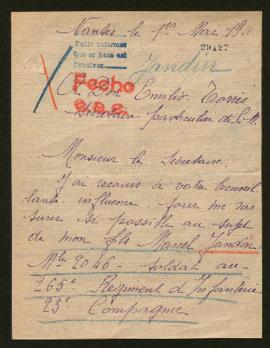 Nantes le 1er Mai 19
Pedir informes
Que se hace así
Devolver
29127
Jandin
Fecho
A Don Emilio Torrès
Secrétaire particulier de S.M.
Monsieur le Secrétaire.
J'ai recours à votre bienveil
lante influence pour me ras
surer si possible au sujet
de mon fils Marcel Jandin
Mle 2046 - soldat au
265e Regiment d'Infanterie
23e Compagnie